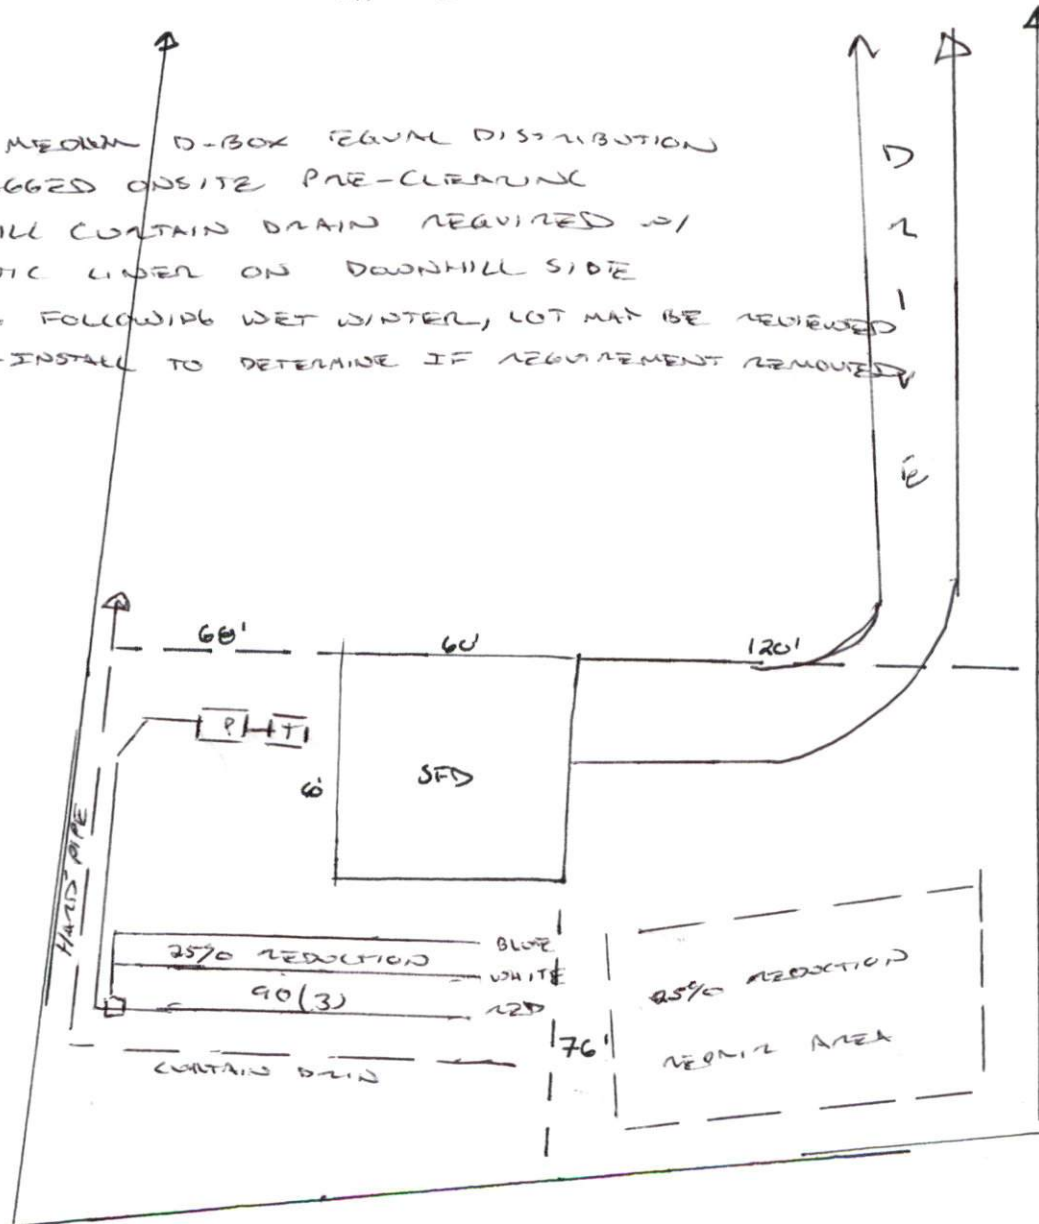 MEDIUM D-BOX EQUAL DISTRIBUTION
GGED ONSITE PRE-CLEARING
ILL CURTAIN DRAIN REQUIRED W/
TIC LINER ON DOWNHILL SIDE
FOLLOWING WET WINTER, LOT MAY BE REVIEWED
-INSTALL TO DETERMINE IF REQUIREMENT REMOVED
DRIVE
60'
120'
P T
SFD
HARD PIPE
25% REDUCTION
90(3)
BLUE
WHITE
RED
CURTAIN DRIN
76'
25% REDUCTION
REPAIR AREA